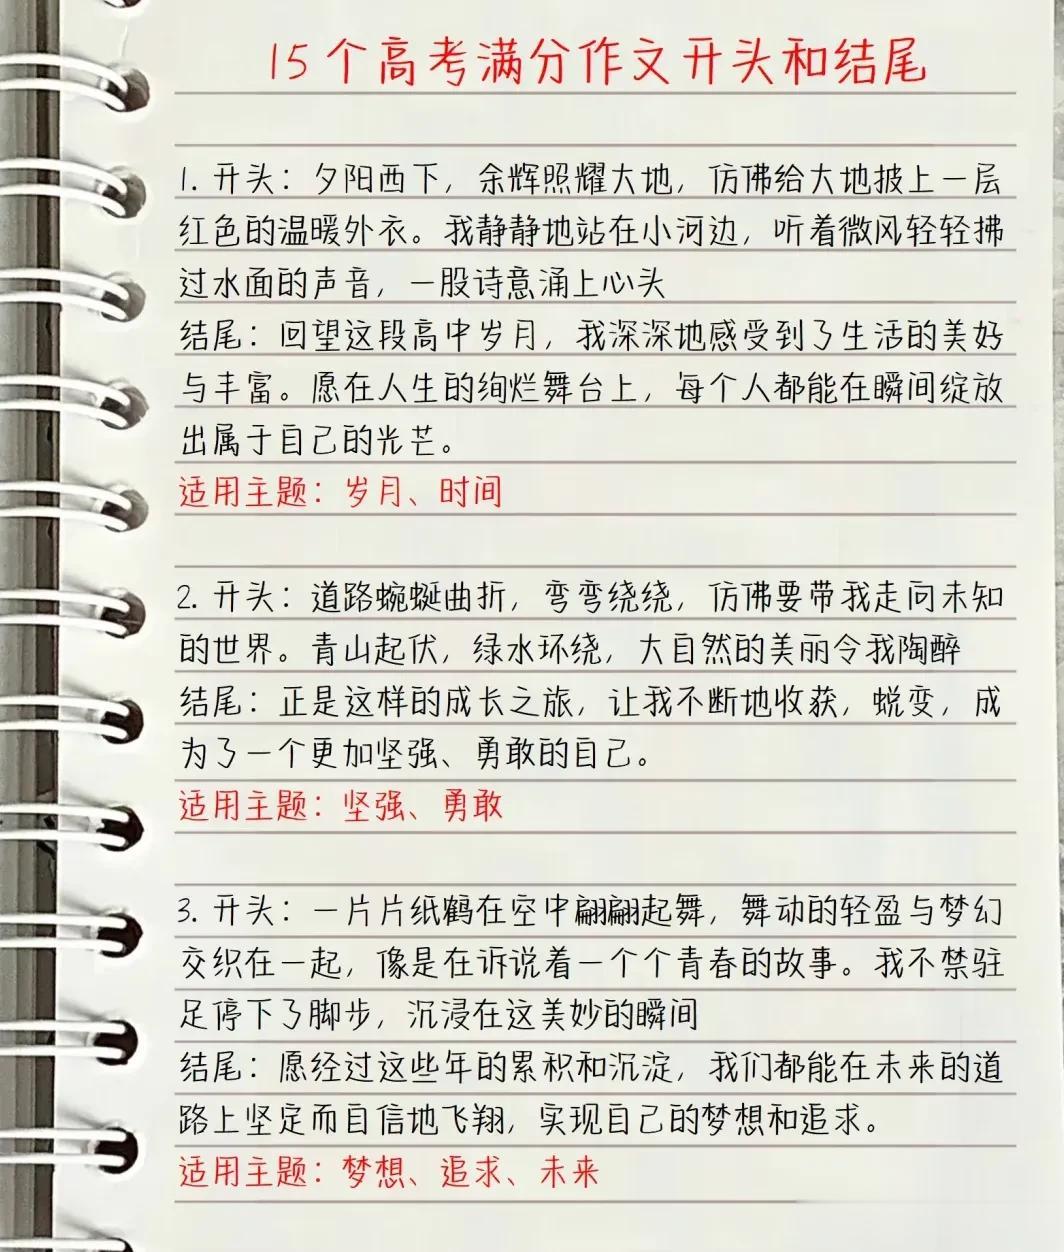 15个高考满分作文开头和结尾
1. 开头：夕阳西下，余辉照耀大地，仿佛给大地披上一层
红色的温暖外衣。我静静地站在小河边，听着微风轻轻拂
过水面的声音，一股诗意涌上心头
结尾：回望这段高中岁月，我深深地感受到了生活的美好
与丰富。愿在人生的绚烂舞台上，每个人都能在瞬间绽放
出属于自己的光芒。
适用主题：岁月、时间
2. 开头：道路蜿蜒曲折，弯弯绕绕，仿佛要带我走向未知
的世界。青山起伏，绿水环绕，大自然的美丽令我陶醉
结尾：正是这样的成长之旅，让我不断地收获，蜕变，成
为了一个更加坚强、勇敢的自己。
适用主题：坚强、勇敢
3. 开头：一片片纸鹤在空中翩翩起舞，舞动的轻盈与梦幻
交织在一起，像是在诉说着一个个青春的故事。我不禁驻
足停下了脚步，沉浸在这美妙的瞬间
结尾：愿经过这些年的累积和沉淀，我们都能在未来的道
路上坚定而自信地飞翔，实现自己的梦想和追求。
适用主题：梦想、追求、未来